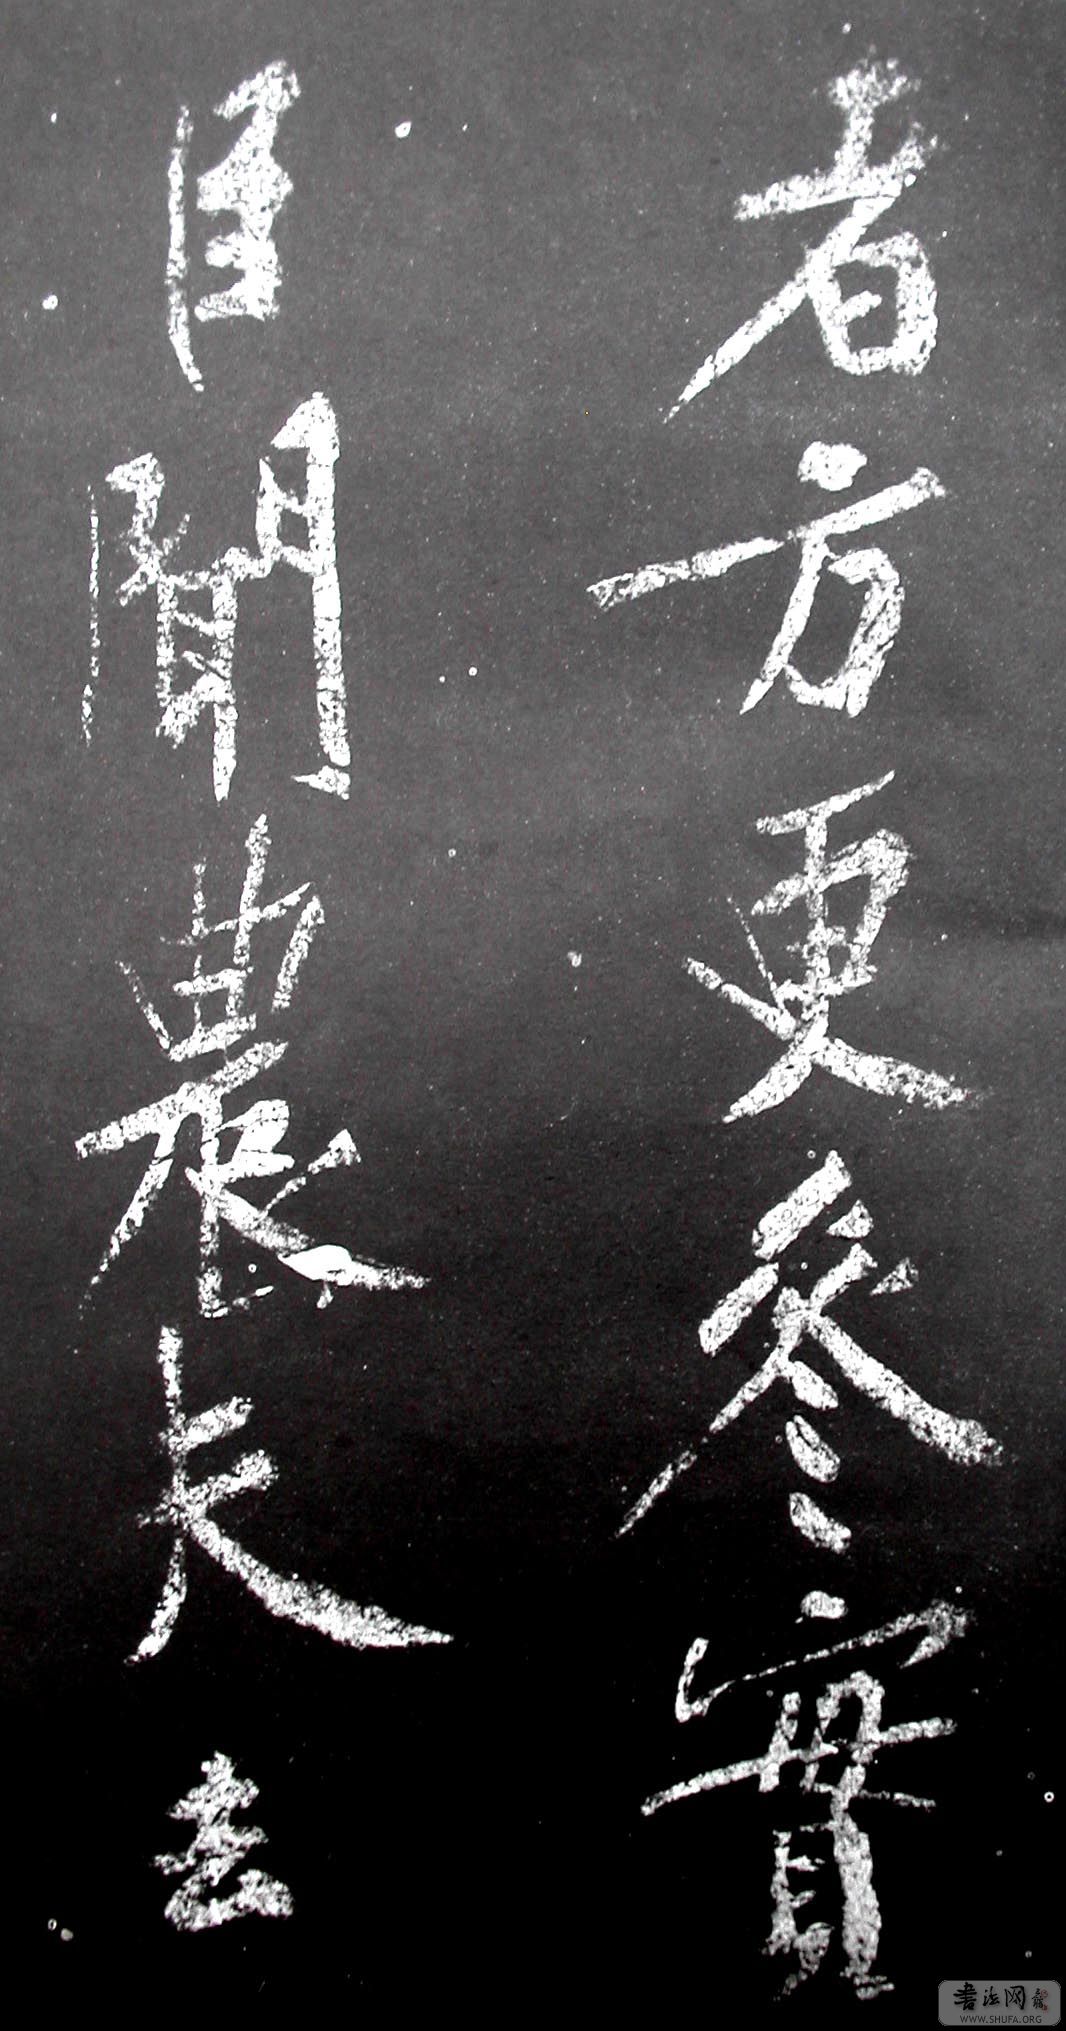 者方更參實
臣聞農夫去
書法网
WWW.SHUFA.ORG